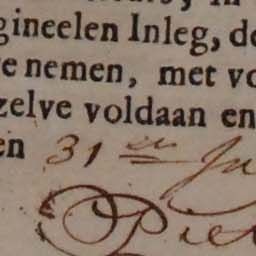 gineelen Inleg, de
e nemen, met vo
zelve voldaan en
en 31 en Ju
Piet